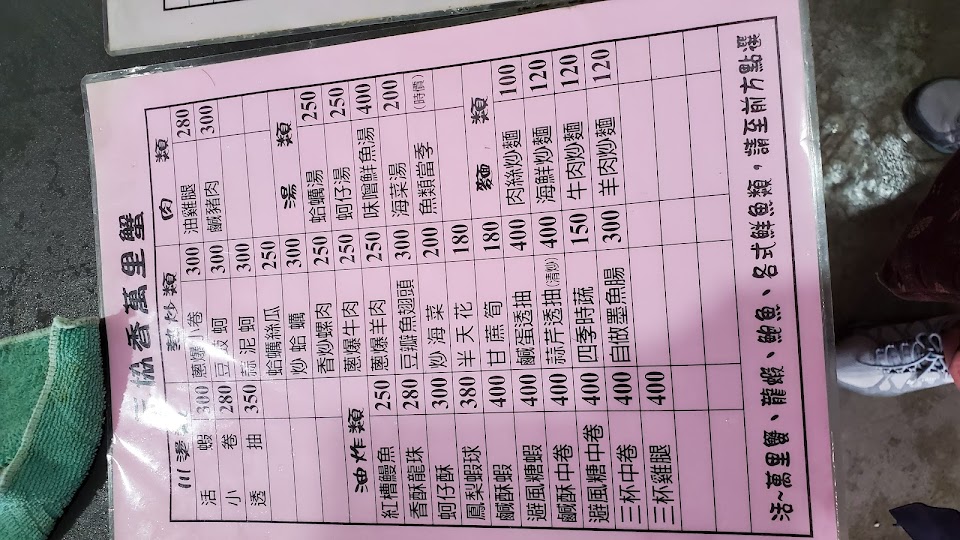 協香萬里蟹
川燙
活蝦 300
小卷 280
透抽 350
油炸類
紅糟鰻魚 250
香酥龍珠 280
蚵仔酥 300
鳳梨蝦球 380
鹹酥蝦 400
避風糖蝦 400
鹹酥中卷 400
避風糖中卷 400
三杯中卷 400
三杯雞腿 400
熱炒類
蔥爆小卷 300
豆豉蚵 300
蒜泥蚵 300
蛤蠣絲瓜 250
炒蛤蠣 300
香炒螺肉 250
蔥爆牛肉 250
蔥爆羊肉 250
豆瓣魚翅頭 300
炒海菜 200
半天花 180
甘蔗筍 180
鹹蛋透抽 400
蒜芹透抽(清炒) 400
四季時蔬 150
自做墨魚腸 300
肉類
油雞腿 280
鹹豬肉 300
湯類
蛤蠣湯 250
蚵仔湯 250
味噌鮮魚湯 400
海菜湯 200
魚類當季 (時價)
麵類
肉絲炒麵 100
海鮮炒麵 120
牛肉炒麵 120
羊肉炒麵 120
活~萬里蟹、龍蝦、鮑魚、各式鮮魚類，請至前方點選